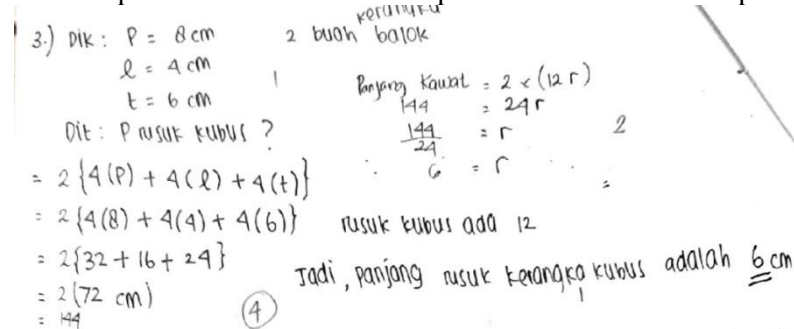 3.) Dik : P = 8 cm
l = 4 cm
t = 6 cm
2 buah kerangka balok
1
Dit : P rusuk kubus ?
= 2 {4(P) + 4(l) + 4(t)}
= 2 {4(8) + 4(4) + 4(6)}
= 2{32 + 16 + 24}
= 2(72 cm)
= 144
4
Panjang kawat = 2 x (12 r)
144 = 24 r
144/24 = r
∴ 6 = r
2
=
rusuk kubus ada 12
Jadi, panjang rusuk kerangka kubus adalah 6 cm
1